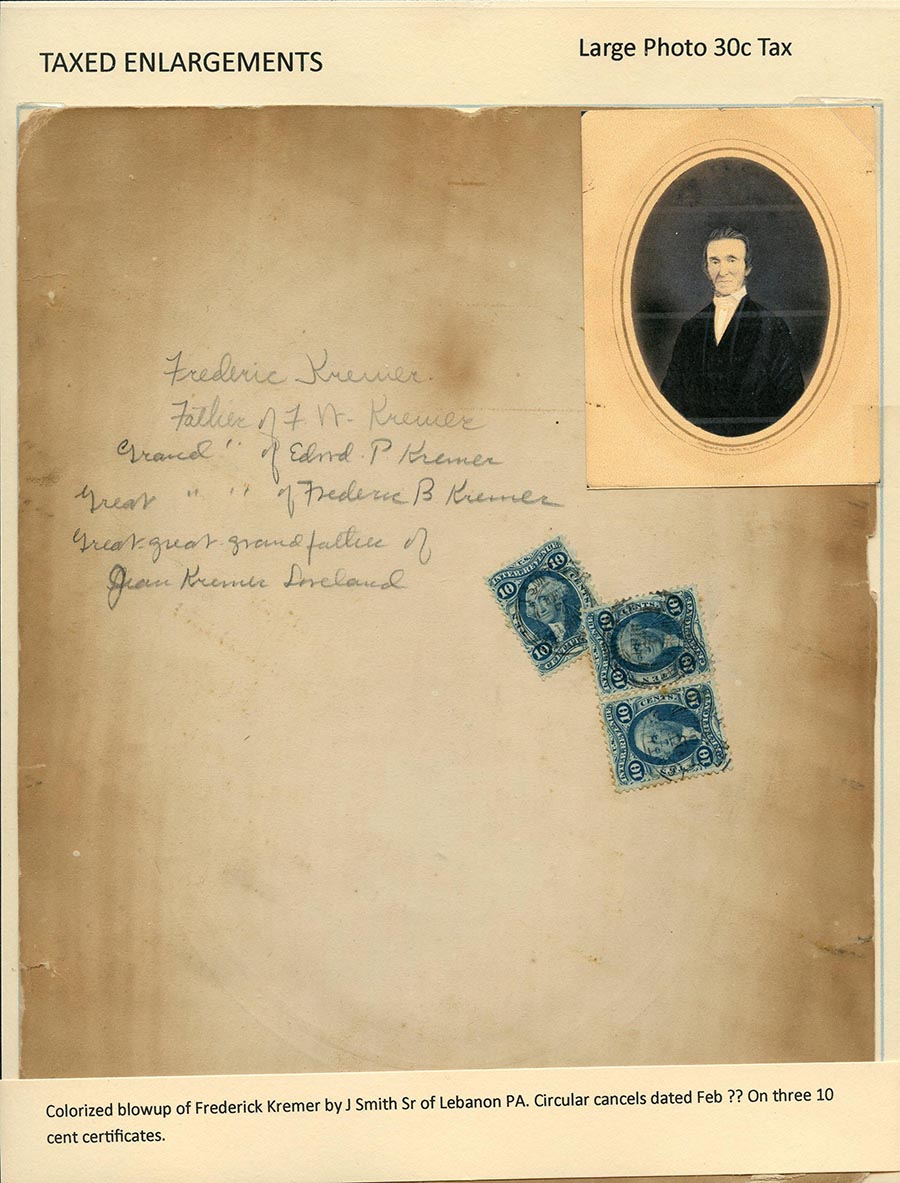 TAXED ENLARGEMENTS
Large Photo 30c Tax
Frederic Kremer.
Father of F. W. Kremer
Grand " of Edwd. P Kremer
Great " " of Frederic B Kremer
Great-great-grandfather of
Jean Kremer Loveland
U.S.
10 10
INTER. REVENUE
CENTS
10
CENTS
10 10
INTER. REVENUE
TEN
10 10
CENTS
10 10
TEN
10 10
Colorized blowup of Frederick Kremer by J Smith Sr of Lebanon PA. Circular cancels dated Feb ?? On three 10
cent certificates.